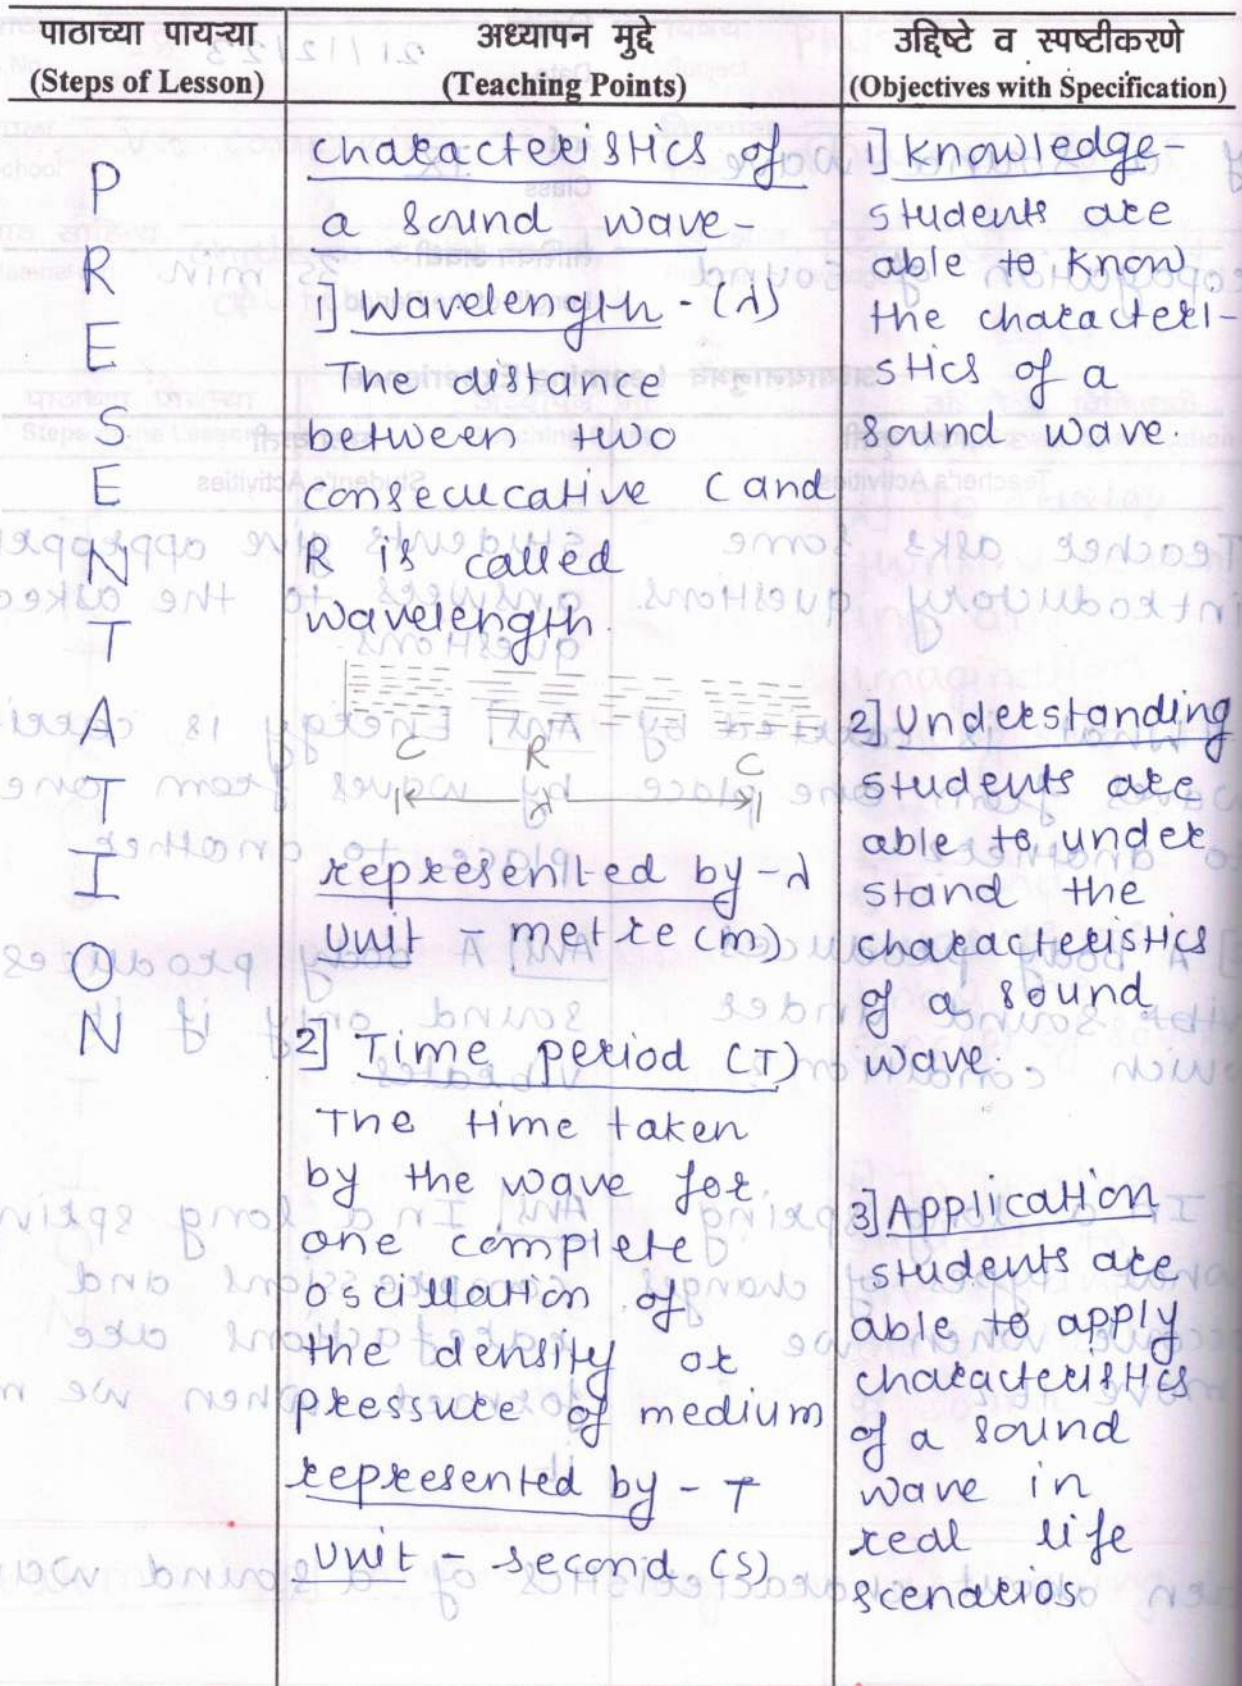 पाठाच्या पायऱ्या
(Steps of Lesson)
अध्यापन मुद्दे
(Teaching Points)
उद्दिष्टे व स्पष्टीकरणे
(Objectives with Specification)
P
R
E
S
E
N
T
A
T
I
O
N
characteristics of
a sound wave-
1] Wavelength - (λ)
The distance
between two
consecucative C and
R is called
wavelength.
C R C
represented by - λ
Unit - metre (m)
2] Time period (T)
The time taken
by the wave for
one complete
oscillation of
the density or
pressure of medium
represented by - T
Unit - second (s)
1] Knowledge-
students are
able to know
the characteri-
stics of a
sound wave.
2] Understanding
students are
able to under
stand the
characteristics
of a sound
wave.
3] Application
students are
able to apply
characteristics
of a sound
wave in
real life
scenarios